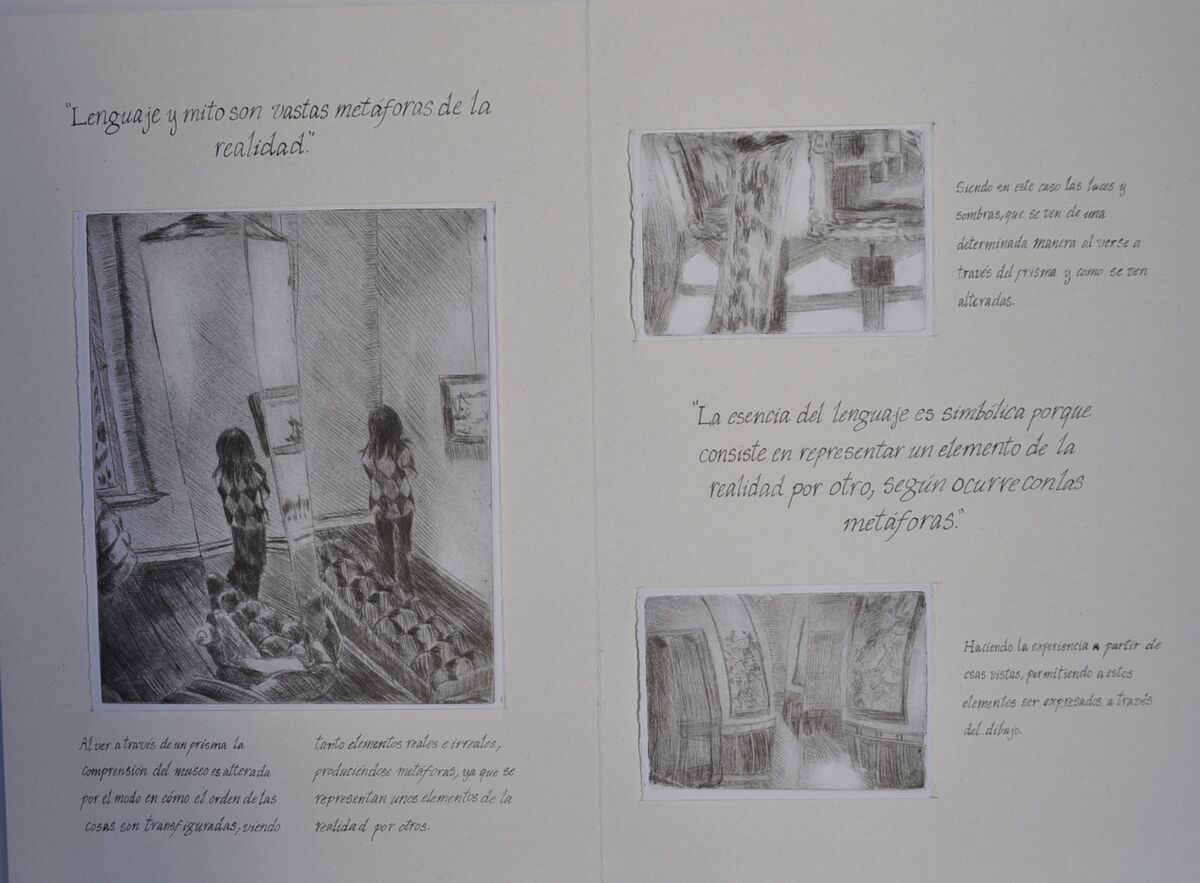 "Lenguaje y mito son vastas metáforas de la
realidad."
Al ver a través de un prisma la
comprensión del museo es alterada
por el modo en cómo el orden de las
cosas son transfiguradas, viendo
tanto elementos reales e irreales,
produciéndose metáforas, ya que se
representan unos elementos de la
realidad por otros.
Siendo en este caso las luces y
sombras, que se ven de una
determinada manera al verse a
través del prisma y como se ven
alteradas.
"La esencia del lenguaje es simbólica porque
consiste en representar un elemento de la
realidad por otro, según ocurre con las
metáforas."
Haciendo la experiencia a partir de
esas vistas, permitiendo a estos
elementos ser expresados a través
del dibujo.